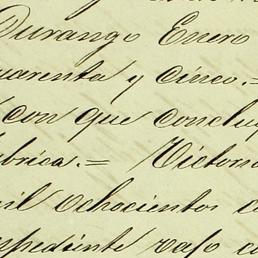 Durango Enero
uarenta y cinco.=
con que concluy
ubrica.= Victor
il ochocientos c
spediente bajo c